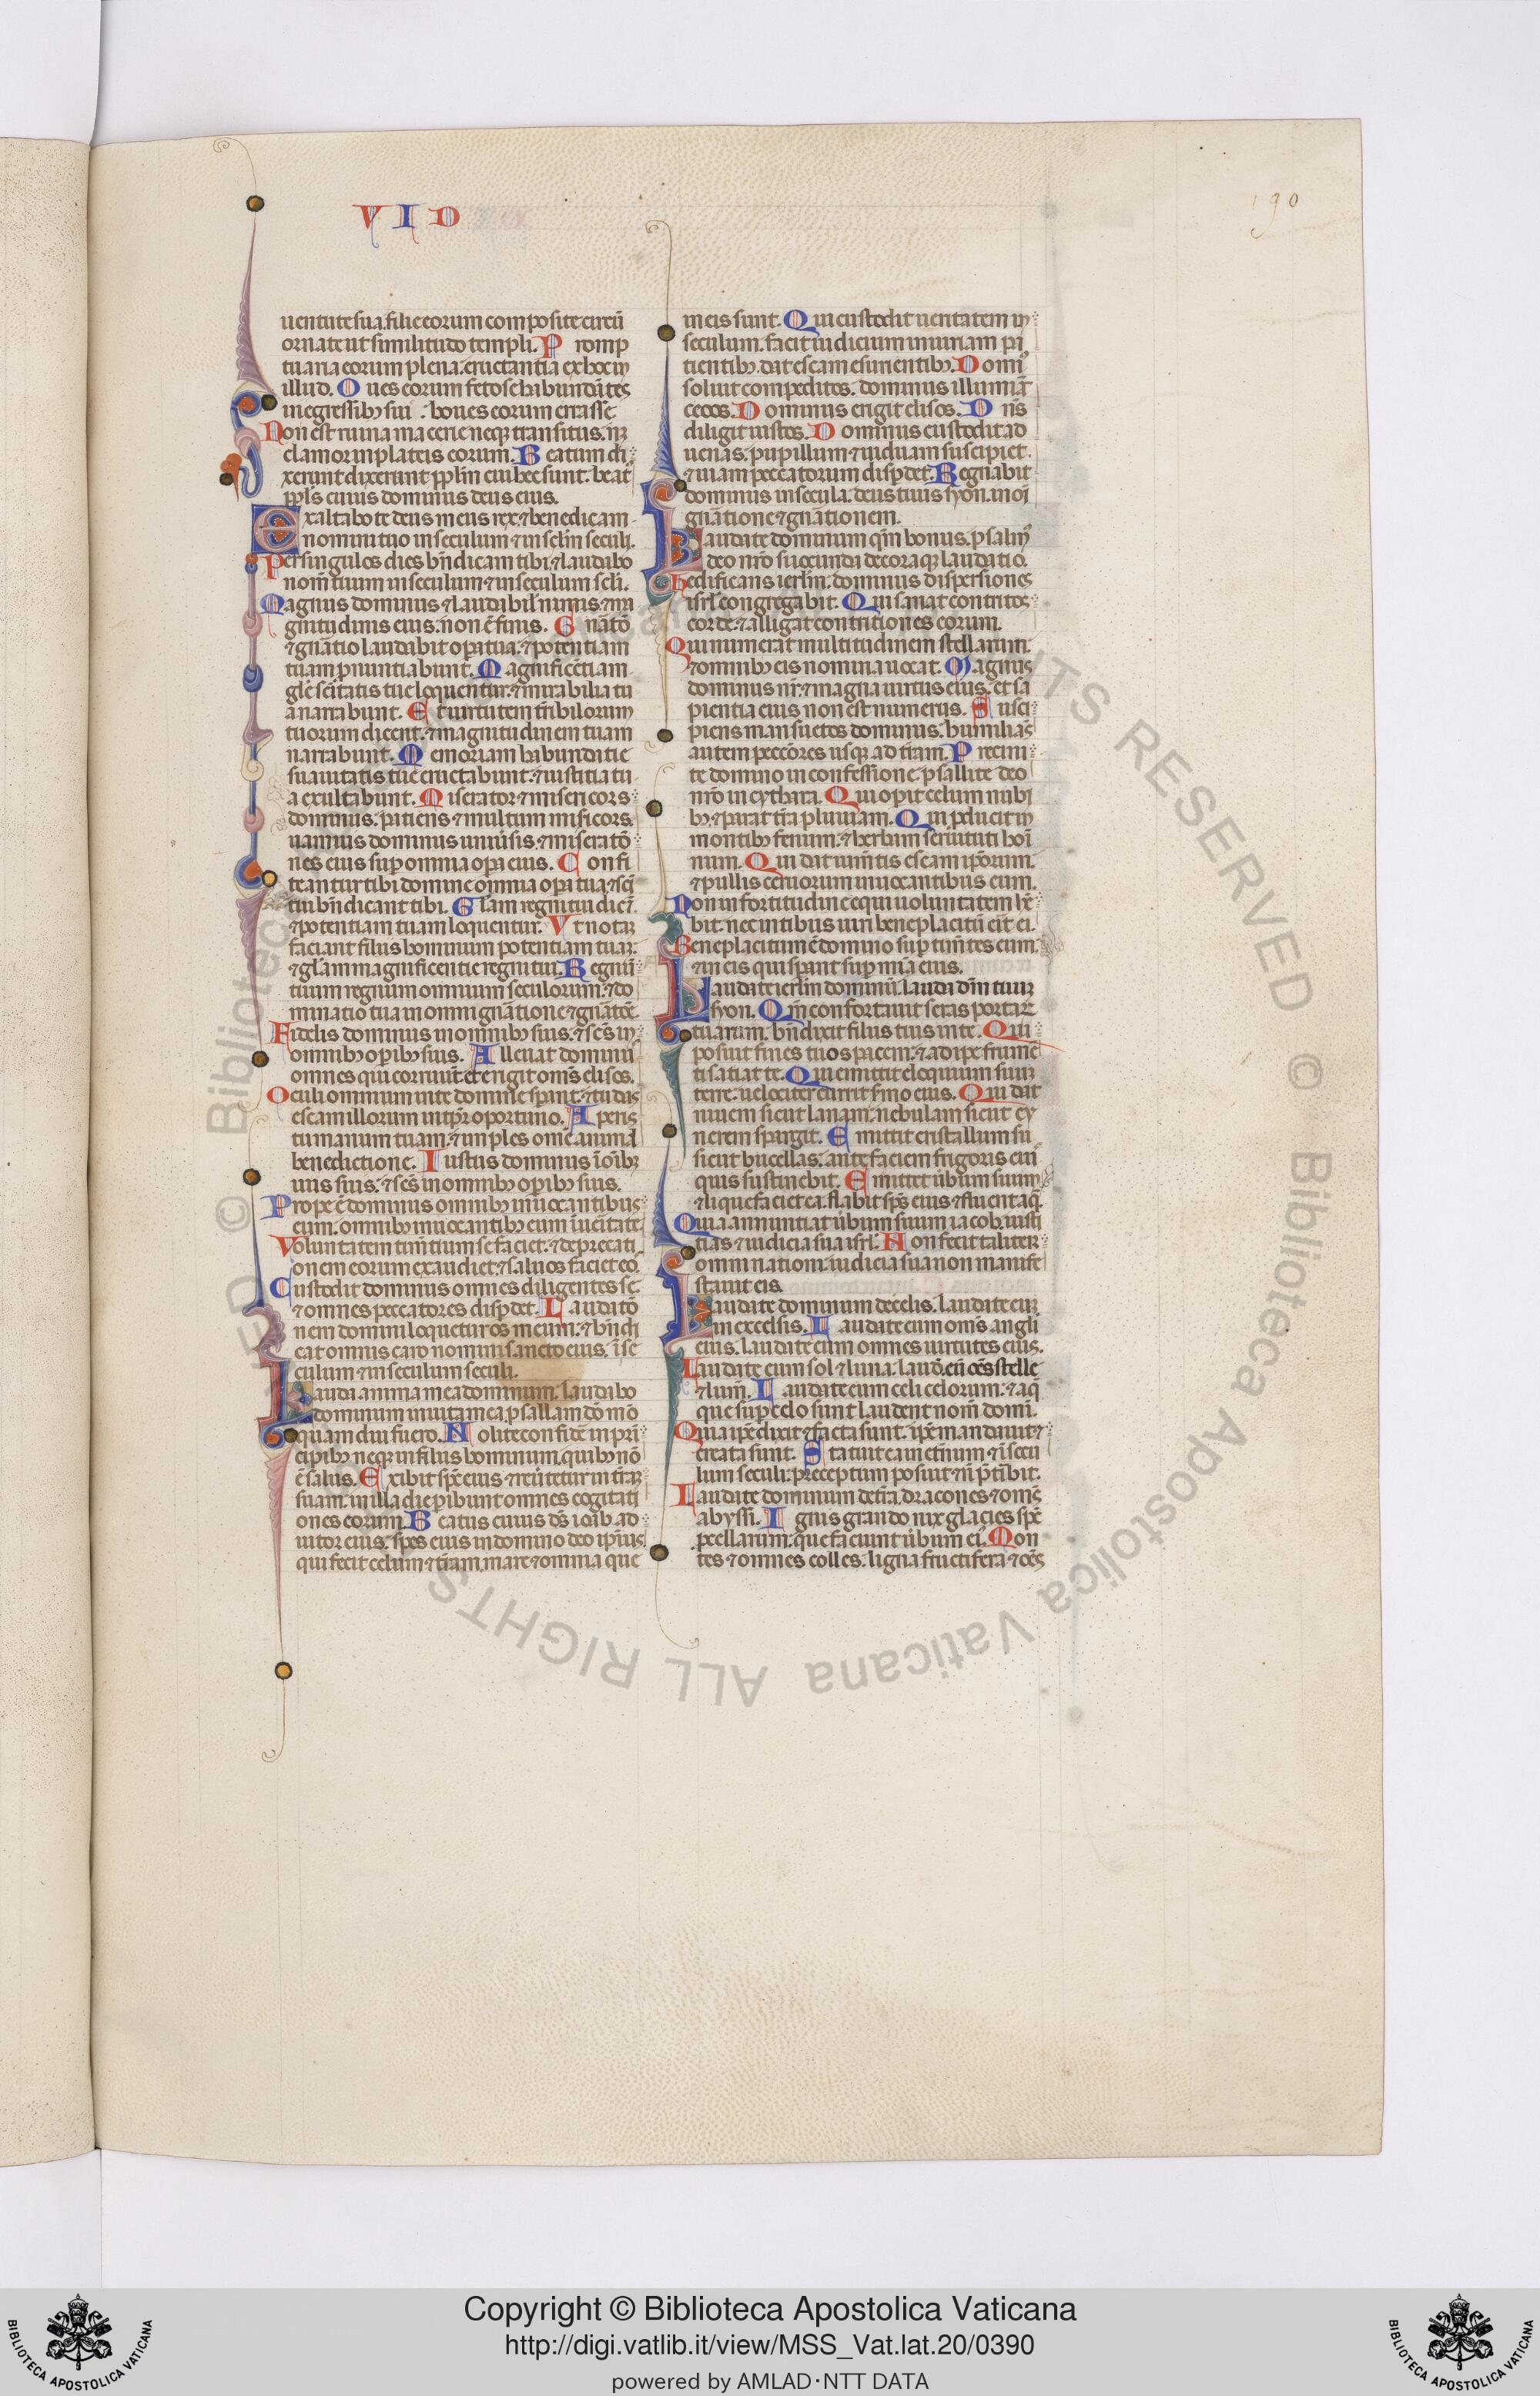 VID
190
uentute sua. filie eorum composite circū
ornate ut similitudo templi. Promp
tuaria eorum plena: eructantia ex hoc in
illud. Oues eorum fetose habundātes
in egressibꝫ sui : boues eorum crasse
Non est ruina macerie neqꝫ transitus. nꝫ
clamor in plateis eorum. Beatum di
xerunt dixerunt pplm cui hec sunt. beat᷒
ppls cuius dominus deus eius.
Exaltabo te deus meus rex: ⁊ benedicam
nomini tuo in seculum ⁊ in sclm seculi.
Per singulos dies bn̄dicam tibi: ⁊ laudabo
nom̄ tuum in seculum ⁊ in seculum scli.
Magnus dominus ⁊ laudabil᷒ nimis: ⁊ ma
gnitudinis eius. non ē finis. Gn̄atō
⁊ gn̄atio laudabit opa tua: ⁊ potentiam
tuam pnuntiabunt. Magnificētiam
glē sc̄itatis tue loquentur: ⁊ mirabilia tu
a narrabunt. Et uirtutem tr̄ibilorum
tuorum dicent: ⁊ magnitudinem tuam
narrabunt. Memoriam habundātie
suauitatis tue eructabunt: ⁊ iustitia tu
a exultabunt. Miserator ⁊ misericors
dominus: patiens ⁊ multum misicors.
uannus dominus uniuˀsis: ⁊ miseratō
nes eius sup omnia opa eius. Confi
teantur tibi domine omnia opa tua: ⁊ sci
tui bn̄dicant tibi. Glam regni tui dicēt
⁊ potentiam tuam loquentur. Vt notaꝫ
faciant filiis hominum potentiam tuaꝫ:
⁊ glam magnificentie regni tui. Regnū
tuum regnum omnium seculorum: ⁊ do
minatio tua in omni gn̄atione ⁊ gn̄atōe.
Fidelis dominus in omnibꝫ suis: ⁊ scs̄ in
omnibꝫ opibꝫ suis. Alleuat dominus
omnes qui corruūt et erigit oms̄ elisos.
Oculi omnium in te domine spant: ⁊ tu das
escam illorum in tp̄r oportuno. Aperis
tu manum tuam: ⁊ imples omē animal
benedictione. Iustus dominus ī oībꝫ
uiis suis: ⁊ scs̄ in omnibꝫ opibꝫ suis.
Prope ē dominus omnibꝫ inuocantibus
eum: omnibꝫ inuocantibꝫ eum ī ueritate
Voluntatem timētium se faciet: ⁊ deprecati
onem eorum exaudiet: ⁊ saluos faciet eo.
Custodit dominus omnes diligentes se:
⁊ omnes peccatores dispdet. Laudatō
nem domini loquetur os meum: ⁊ bn̄di
cat omnis caro nomini sancto eius. ī se
culum ⁊ in seculum seculi.
Lauda anima mea dominum. laudabo
dominum in uita mea. psallam dō mō
quam diu fuero. Nolite confidē in pri
cipibꝫ neqꝫ in filiis hominum. quibꝫ nō
ē salus. Exibit sps̄ eius ⁊ reuˀtetur in tr̄aꝫ
suam: in illa die pibunt omnes cogitati
ones eorum. Beatus cuius ds̄ iacob ad
iutor eius. spes eius in domino deo ip̄ius.
qui fecit celum ⁊ tr̄am. mare ⁊ omnia que
in eis sunt. Qui custodit ueritatem in
seculum. facit iudicium iniuriam pa
tientibꝫ. dat escam esurientibꝫ. Domī
soluit compeditos. dominus illumīat
cecos. Dominus erigit elisos. Dn̄s
diligit iustos. Dominus custodit ad
uenas. pupillum ⁊ uiduam suscipiet.
⁊ uiam peccatorum dispdet. Regnabit
dominus in secula. deus tuus syon. in oī
gn̄atione ⁊ gn̄ationem.
Laudate dominum qm̄ bonus. psalmˀ
deo nr̄o iucunda decoraqꝫ laudatio.
Hedificans ierlm. dominus dispersiones
isrl᷒ congregabit. Qui sanat contritos
corde: ⁊ alligat contritiones eorum.
Qui numerat multitudinem stellarum:
⁊ omnibꝫ eis nomina uocat. Magnus
dominus nr̄: ⁊ magna uirtus eius. et sa
pientia eius non est numerus. Susci
piens mansuetos dominus: humilians
autem peccōres usqꝫ ad tr̄am. Precini
te domino in confessione: psallite deo
nr̄o in cythara. Qui opit celum nubi
bꝫ: ⁊ parat tr̄a pluuiam. Qui pducit in
montibꝫ fenum: ⁊ herbam seruituti homi
num. Qui dat iumtis escam ip̄orum:
⁊ pullis coruorum inuocantibus eum.
Non in fortitudine equi uoluntatem hē
bit: nec in tibiis uiri beneplacitū erit ei.
Beneplacitum ē domino sup timtes eum:
⁊ in eis qui spant sup mīa eius.
Lauda ierlm dominū. lauda dm̄ tuuꝫ
syon. Qm̄ confortauit seras portarꝫ
tuarum. bn̄dixit filiis tuis in te. Qui
posuit fines tuos pacem: ⁊ adipe frumē
ti satiat te. Qui emittit eloquium suuꝫ
terre. uelociter currit sˀmo eius. Qui dat
niuem sicut lanam: nebulam sicut cy
nerem spargit. Emittit cristallum su
sicut bucellas: ante faciem frigoris eiu
quis sustinebit. Emittet uˀbum suum
⁊ liquefaciet ea. flabit sps̄ eius ⁊ fluent aq̄.
Qui annuntiat uˀbum suum iacob. iusti
tias ⁊ iudicia sua isrl᷒. Non fecit taliter
omni nationi: iudicia sua non manife
stauit eis.
Laudate dominum de celis. laudate euꝫ
in excelsis. Laudate eum oms̄ angli
eius. laudate eum omnes uirtutes eius.
Laudate eum sol ⁊ luna. laud̄. eū oēs stelle
⁊ lum̄. Laudate eum celi celorum: ⁊ aq̄
que sup celo sunt laudent nom̄ domi.
Quia ipē dixit ⁊ facta sunt. ipē mandauit ⁊
creata sunt. Statuit ea in etˀnum ⁊ ī secu
lum seculi: preceptum posuit ⁊ n̄ p̄tˀibit.
Laudate dominum de tr̄a. dracones ⁊ oms̄
abyssi. Ignis grando nix glacies spē
pcellarum: que faciunt uˀbum eiˀ. Mon
tes ⁊ omnes colles: ligna fructifera ⁊ oēs
Copyright © Biblioteca Apostolica Vaticana
http://digi.vatlib.it/view/MSS_Vat.lat.20/0390
powered by AMLAD·NTT DATA
BIBLIOTECA APOSTOLICA VATICANA
BIBLIOTECA APOSTOLICA VATICANA
© Biblioteca Apostolica Vaticana ALL RIGHTS RESERVED
© Biblioteca Apostolica Vaticana ALL RIGHTS RESERVED